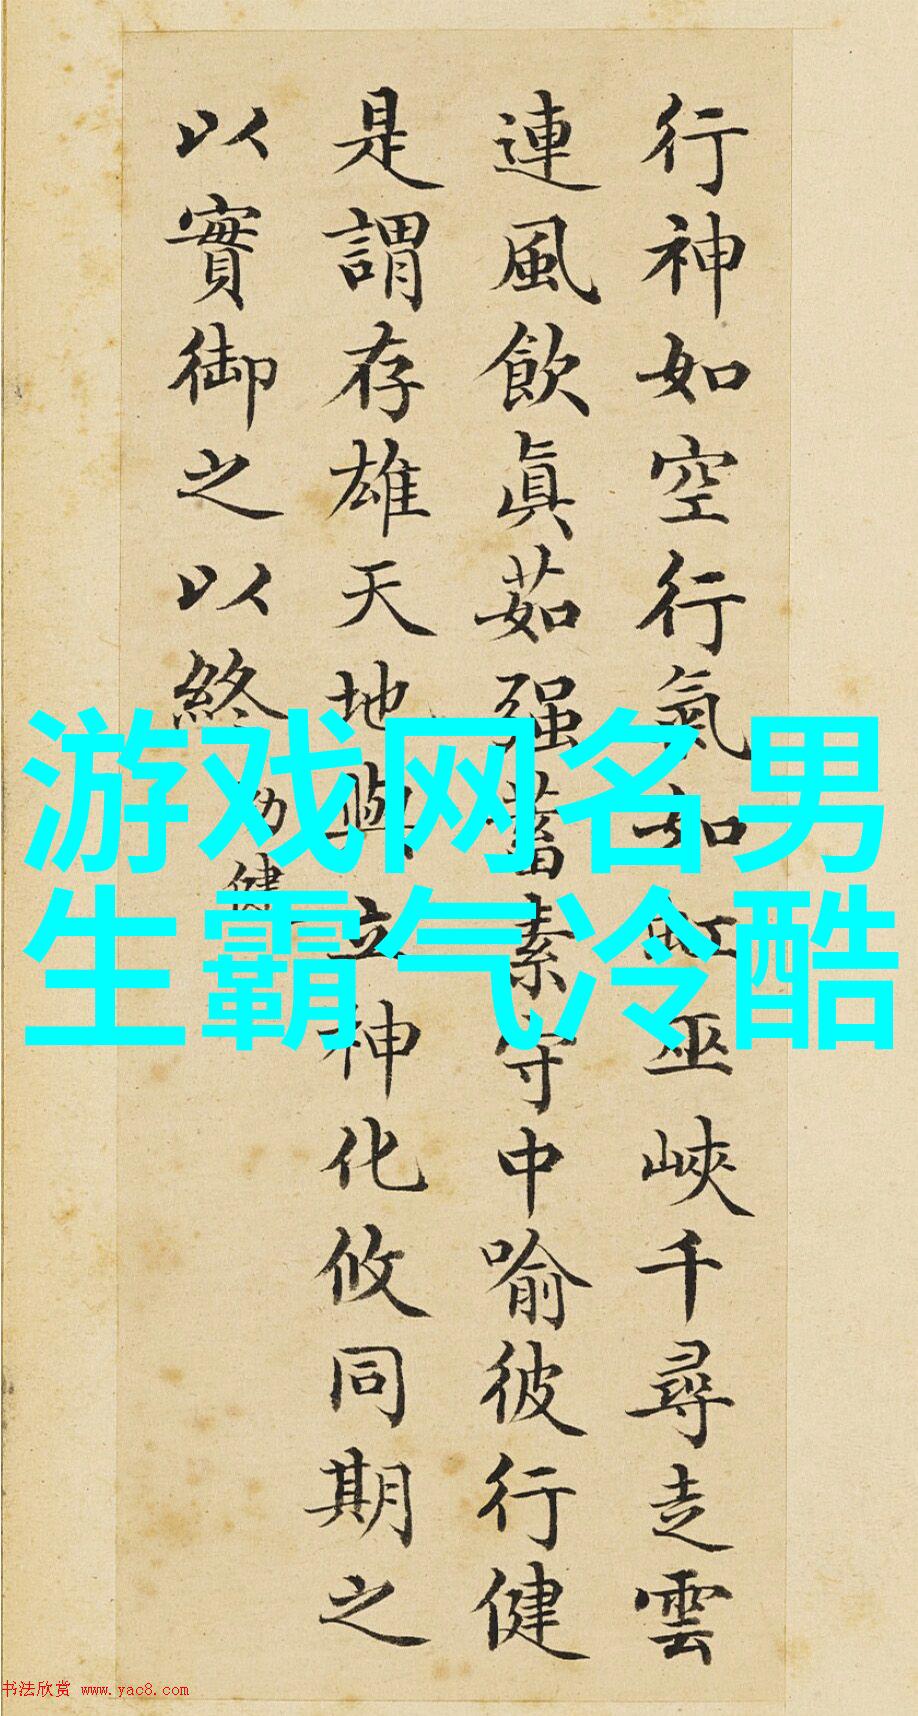 行神如空行氣如虹巫峽千尋走雲
連風飲眞茹强蓄素守中喻彼行健
是謂存雄天地與立神化攸同期之
以實御之以終
勁健
游戏网名男
生霸气冷酷
书法欣赏 www.yac8.com